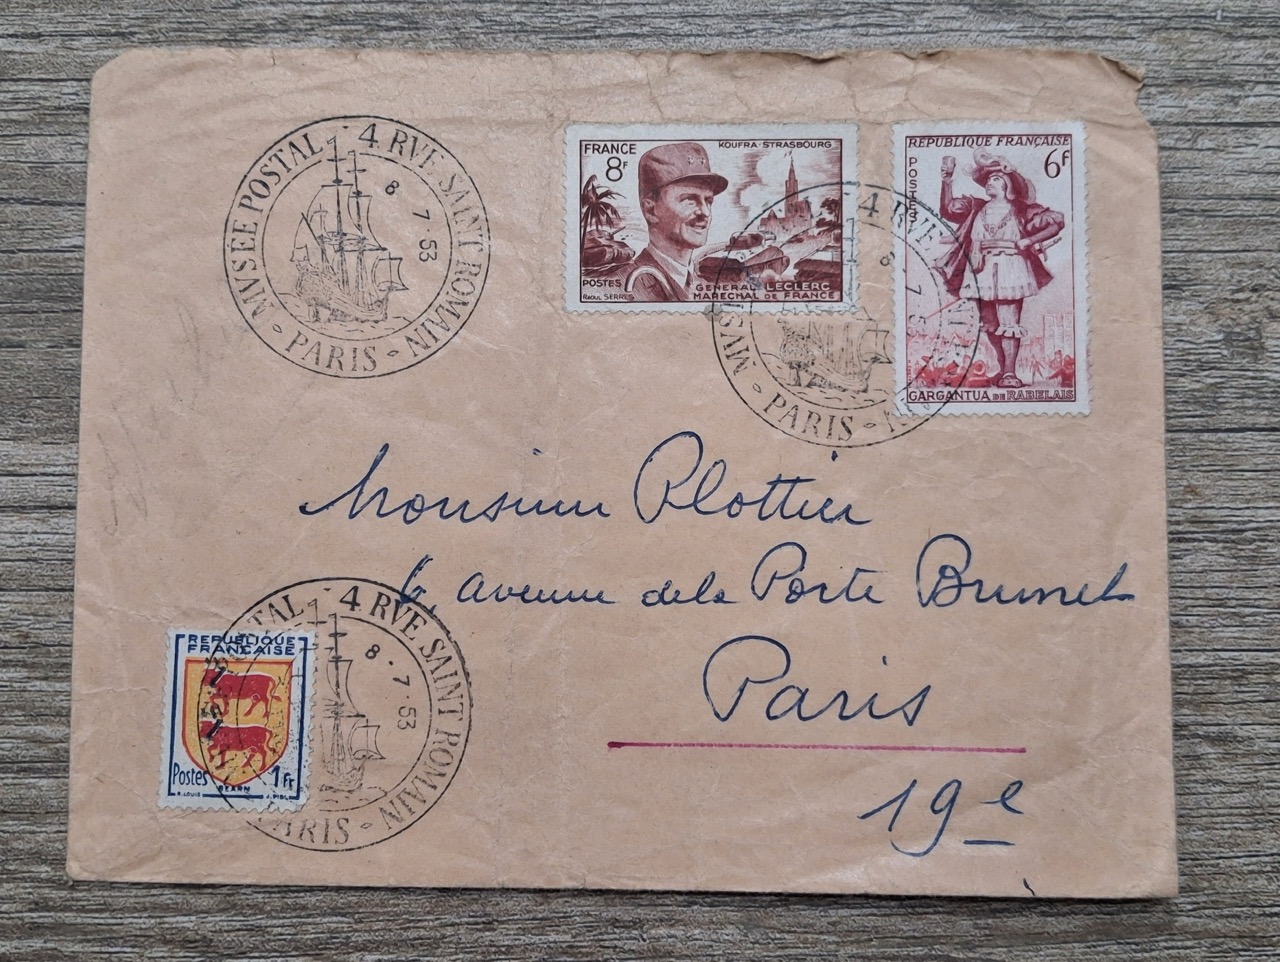 MVSEE POSTAL · 4 RVE SAINT ROMAIN
8 · 7 · 53
· PARIS ·
FRANCE
8F
KOUFRA-STRASBOURG
POSTES
RAOUL SERRES
GENERAL LECLERC
MARECHAL DE FRANCE
REPUBLIQUE FRANÇAISE
POSTES
6F
GARGANTUA DE RABELAIS
4 RVE
8 · 7 · 5
MVS
· PARIS ·
Monsieur Plottier
6, avenue de la Porte Brunet
Paris
19e
TAL · 4 RVE SAINT ROMAIN
8 · 7 · 53
PARIS ·
REPUBLIQUE
FRANÇAISE
Postes
1Fr
BEARN
R. LOUIS
J. PIEL